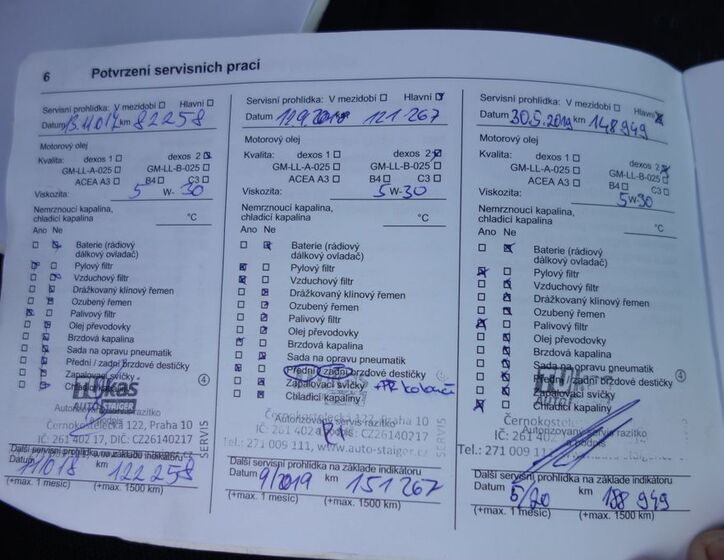 6 Potvrzení servisních prací
Servisní prohlídka: V mezidobí Hlavní
Datum 13.11.017 km 82258
Motorový olej
Kvalita: dexos 1 dexos 2
GM-LL-A-025 GM-LL-B-025
ACEA A3 B4 C3
Viskozita: 5 W- 30
Nemrznoucí kapalina,
chladicí kapalina °C
Ano Ne
Baterie (rádiový
dálkový ovladač)
Pylový filtr
Vzduchový filtr
Drážkovaný klínový řemen
Ozubený řemen
Palivový filtr
Olej převodovky
Brzdová kapalina
Sada na opravu pneumatik
Přední / zadní brzdové destičky
Zapalovací svíčky
Chladicí kapaliny
AUTO STAIGER
Autorizovaný servis razítko
a podpis
Černokostelecká 122, Praha 10
IČ: 261 402 17, DIČ: CZ26140217
SERVIS
Další servisní prohlídka na základě indikátoru
Datum 11/018 km 122258
(+max. 1 měsíc) (+max. 1500 km)
Servisní prohlídka: V mezidobí Hlavní
Datum 12.9.2018 km 121 267
Motorový olej
Kvalita: dexos 1 dexos 2
GM-LL-A-025 GM-LL-B-025
ACEA A3 B4 C3
Viskozita: 5W-30
Nemrznoucí kapalina,
chladicí kapalina °C
Ano Ne
Baterie (rádiový
dálkový ovladač)
Pylový filtr
Vzduchový filtr
Drážkovaný klínový řemen
Ozubený řemen
Palivový filtr
Olej převodovky
Brzdová kapalina
Sada na opravu pneumatik
Přední / zadní brzdové destičky
Zapalovací svíčky
Chladicí kapaliny
Černokostelecká 122, Praha 10
Autorizovaný servis razítko
IČ: 261 402 DIČ: CZ26140217
Tel.: 271 009 111, www.auto-staiger.cz
SERVIS
Další servisní prohlídka na základě indikátoru
Datum 9/2019 km 151 267
(+max. 1 měsíc) (+max. 1500 km)
Servisní prohlídka: V mezidobí Hlavní
Datum 30.5.2019 km 148949
Motorový olej
Kvalita: dexos 1 dexos 2
GM-LL-A-025 GM-LL-B-025
ACEA A3 B4 C3
Viskozita: 5W-30
Nemrznoucí kapalina,
chladicí kapalina °C
Ano Ne
Baterie (rádiový
dálkový ovladač)
Pylový filtr
Vzduchový filtr
Drážkovaný klínový řemen
Ozubený řemen
Palivový filtr
Olej převodovky
Brzdová kapalina
Sada na opravu pneumatik
Přední / zadní brzdové destičky
Zapalovací svíčky
Chladicí kapaliny
Autorizovaný servis razítko
a podpis
IČ: 261 402
Tel.: 271 009 111
Další servisní prohlídka na základě indikátoru
Datum 5/20 km 188 949
(+max. 1 měsíc) (+max. 1500 km)